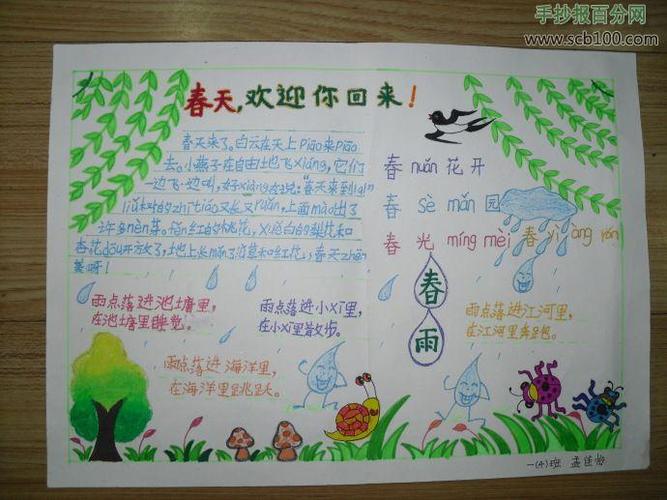 手抄报百分网
www.scb100.com
春天,欢迎你回来!
春天来了。白云在天上Piāo来Piāo
去。小燕子在自由地飞xiáng,它们
一边飞一边叫,好xiàng在说:"春天来到
liǔ树的zhī tiáo又长又ruǎn,上面mào出了
许多nèn芽。粉红的桃花,雪白的梨花和
杏花dōu开放了,地上长mǎn了草和红花,春天zhēn
美呀!
春nuǎn花开
春 sè mǎn 园
春 光 míng mèi 春 yì àng rán
春
雨
雨点落进池塘里,
在池塘里睡觉。
雨点落进小xī里,
在小xī里散步。
雨点落进江河里,
在江河里奔跑。
雨点落进海洋里,
在海洋里跳跃。
一(4)班 孟佳